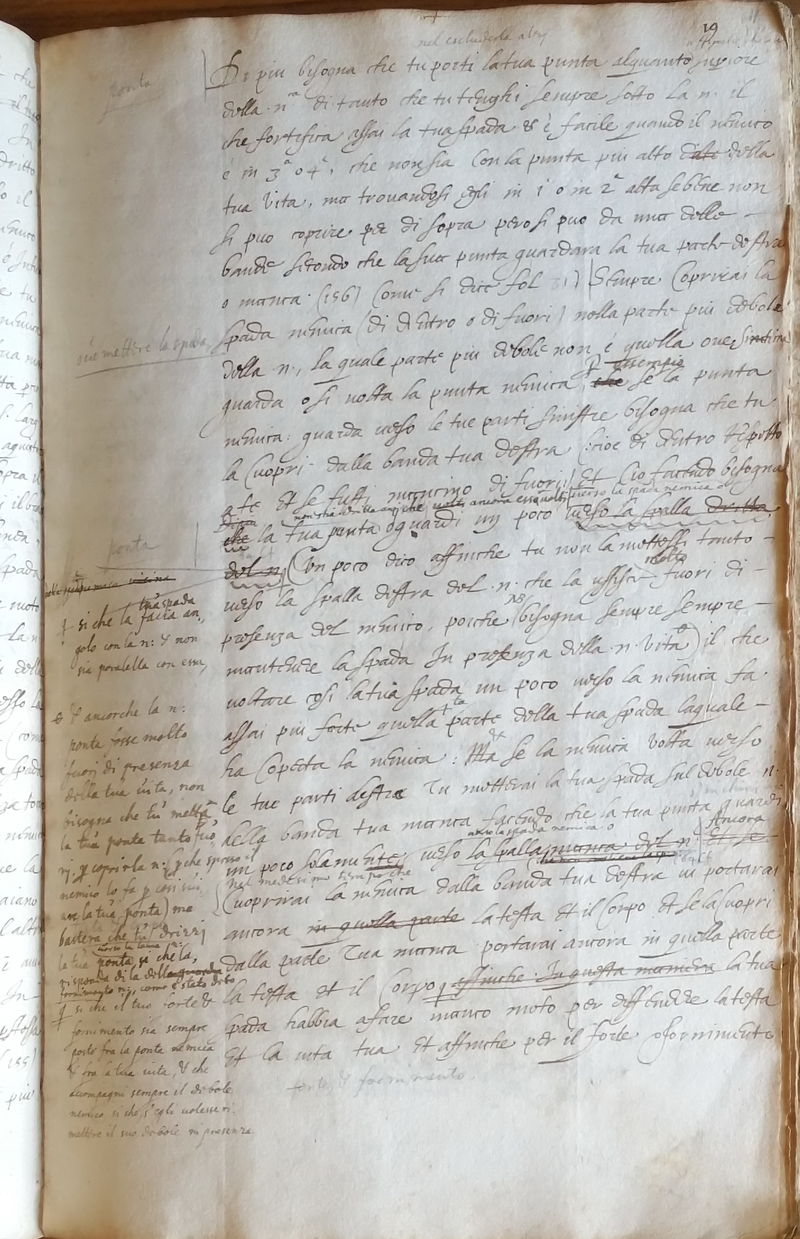 19
nel escluderla
ponta
Di piu bisogna che tu porti la tua punta alquanto
della .n.ª di tanto che tu tenghi sempre sotto la n. il
che fortifica assai la tua spada & è facile quando il nemico
è in 3ª o 4ª, che non sia con la punta piu alto della
tua vita, ma trovandosi egli in 1ª o in 2ª alta se bene non
si puo coprire per di sopra pero si puo da una delle
bande secondo che la sua punta guardara la tua parte destra
o manca. (156) Come si dice fol 31) Sempre Coprirai la
doue mettere la spada
spada nemica (di dentro o di fuori) nella parte piu debole
della .n., la quale parte piu debole non e quella ove
guarda o si volta la punta nemica, che se la punta
nemica: guarda verso le tue parti sinistre bisogna che tu
la Cuopri dalla banda tua destra (cioe di dentro rispetto
a te Et se tutti mancino di fuori) Et Cio facendo bisogna
verso la spada nemica
che la tua punta guardi un poco verso la spalla dritta
ponta
del n. (Un poco dico affinche tu non la mettessi tanto
verso la spalla destra del .n. che la uscisse fuori di
presenza del nemico, poiche bisogna sempre sempre
mantenere la spada In presenza della .n. vita) il che
voltare cosi la tua spada un poco verso la nemica fa
assai piu forte quella parte della tua spada laquale
ha Coperta la nemica: Ma se la nemica volta verso
le tue parti destre Tu metterai la tua spada sul debole n.
della banda tua manca facendo che la tua punta guardi
verso la spada nemica
un poco solamente verso la spalla manca del n. Ancora
nel medesimo tempo che
Cuoprirai la nemica dalla banda tua destra vi portarai
ancora in quella parte la testa et il Corpo et se la cuopri
dalla parte Tua manca portarai ancora in quella parte
la testa et il Corpo affinche In questa maniera la tua
spada habbia a fare manco moto per diffendere la testa
et la vita tua et affinche per il forte o fornimento
forte, & fornimento.
si che la tua spada
faccia an
golo con la n: & non
sia paralella con essa,
& ancorche la n:
ponta fosse molto
fuori di presenza
della tua vita, non
bisogna che tu metta
la tua ponta tanto fuo
ri p coprir la n: p che spesso il
nemico lo fa p
la tua ponta) ma
bastera che tu drizzi
la tua ponta, si che la
risponda di la
fornimento n:, come è stato detto
si che il tuo forte &
fornimento sia sempre
posto fra la ponta nemica
& la tua vita, & che
acompagni sempre il debole
nemico si che, s'egli volesse ri
mettere il suo debole in presenza